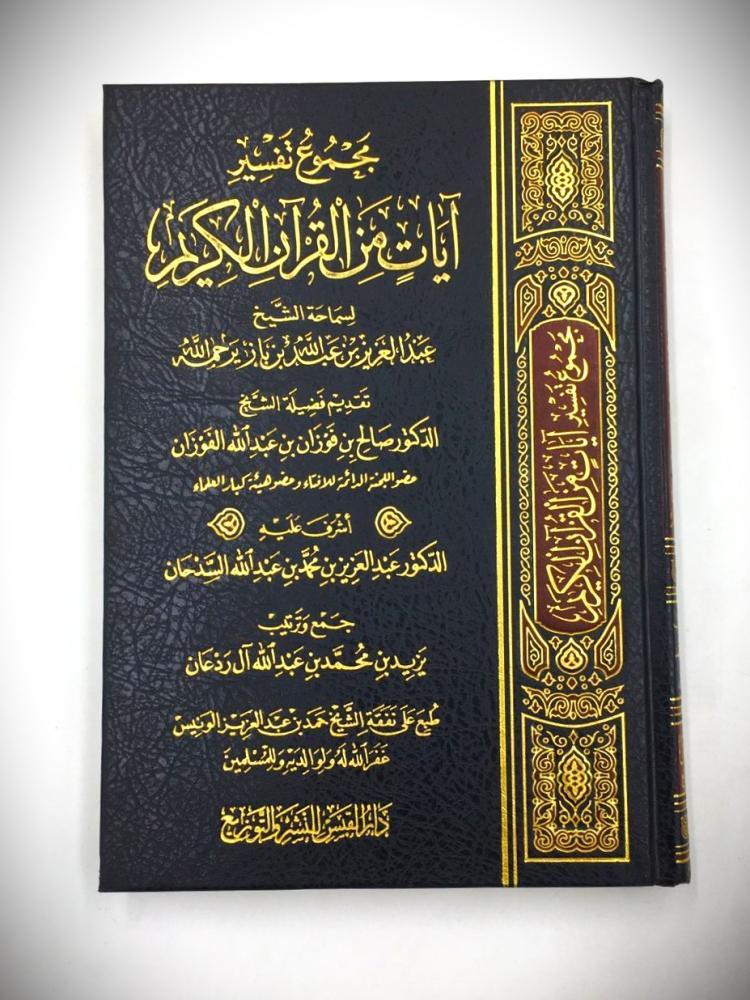 مَجْمُوعُ تَفْسِيرِ
آيَاتٍ مِنَ الْقُرْآنِ الْكَرِيمِ
لِسَمَاحَةِ الشَّيْخِ
عَبْدِ الْعَزِيزِ بْنِ عَبْدِ اللَّهِ بْنِ بَازٍ يَرحمه اللَّهُ
تَقْدِيم فَضِيلَة الشَّيْخ
الدكتور صَالِح بن فوزان بن عَبْد الله الفَوْزَان
عضو اللجنة الدائمة للافتاء وعضو هيئة كبار العلماء
أشرف عَلَيْهِ
الدكتور عَبْد العَزيز بن مُحَمَّد بن عَبْد الله السَّدْحَان
جَمْع وَتَرْتيْب
يَزِيد بن مُحَمَّد بن عَبْد الله آل رَدْعَان
طُبِعَ عَلَى نَفَقَةِ الشَّيْخ حَمَد بن عَبْد العَزيز الونيس
غَفَرَ اللهُ لَهُ وَلِوَالِدِيْهِ وَلِلْمُسْلِمِينَ
دَارُ الْقَبَسِ لِلنَّشْرِ وَالتَّوْزِيعِ
مَجْمُوعُ تَفْسِيرِ آيَاتٍ مِنَ الْقُرْآنِ الْكَرِيمِ